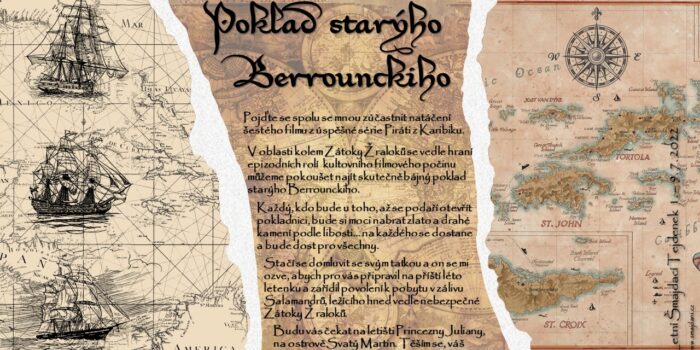 Poklad starýho
Berrounckiho
Pojďte se spolu se mnou zúčastnit natáčení
šestého filmu z úspěšné série Piráti z Karibiku.
V oblasti kolem Zátoky Žraloků se vedle hraní
epizodních rolí kultovního filmového počinu
můžeme pokoušet najít skutečně bájný poklad
starýho Berrounckiho.
Každý, kdo bude u toho, až se podaří otevřít
pokladnici, bude si moci nabrat zlato a drahé
kamení podle libosti... na každého se dostane
a bude dost pro všechny.
Stačí se domluvit se svým taťkou a on se mi
ozve, abych pro vás připravil na příští léto
letenku a zařídil povolení k pobytu v zálivu
Salamandrů, ležícího hned vedle nebezpečné
Zátoky Žraloků.
Budu vás čekat na letišti Princezny Juliany,
na ostrově Svatý Martin. Těším se, váš
MAR
Ocean
W
E
S
JOST VAN DYKE
TORTOLA
ST. JOHN
ST. CROIX
Legend
Letní Šmajdád Tejdenek 1.-9.7.2022